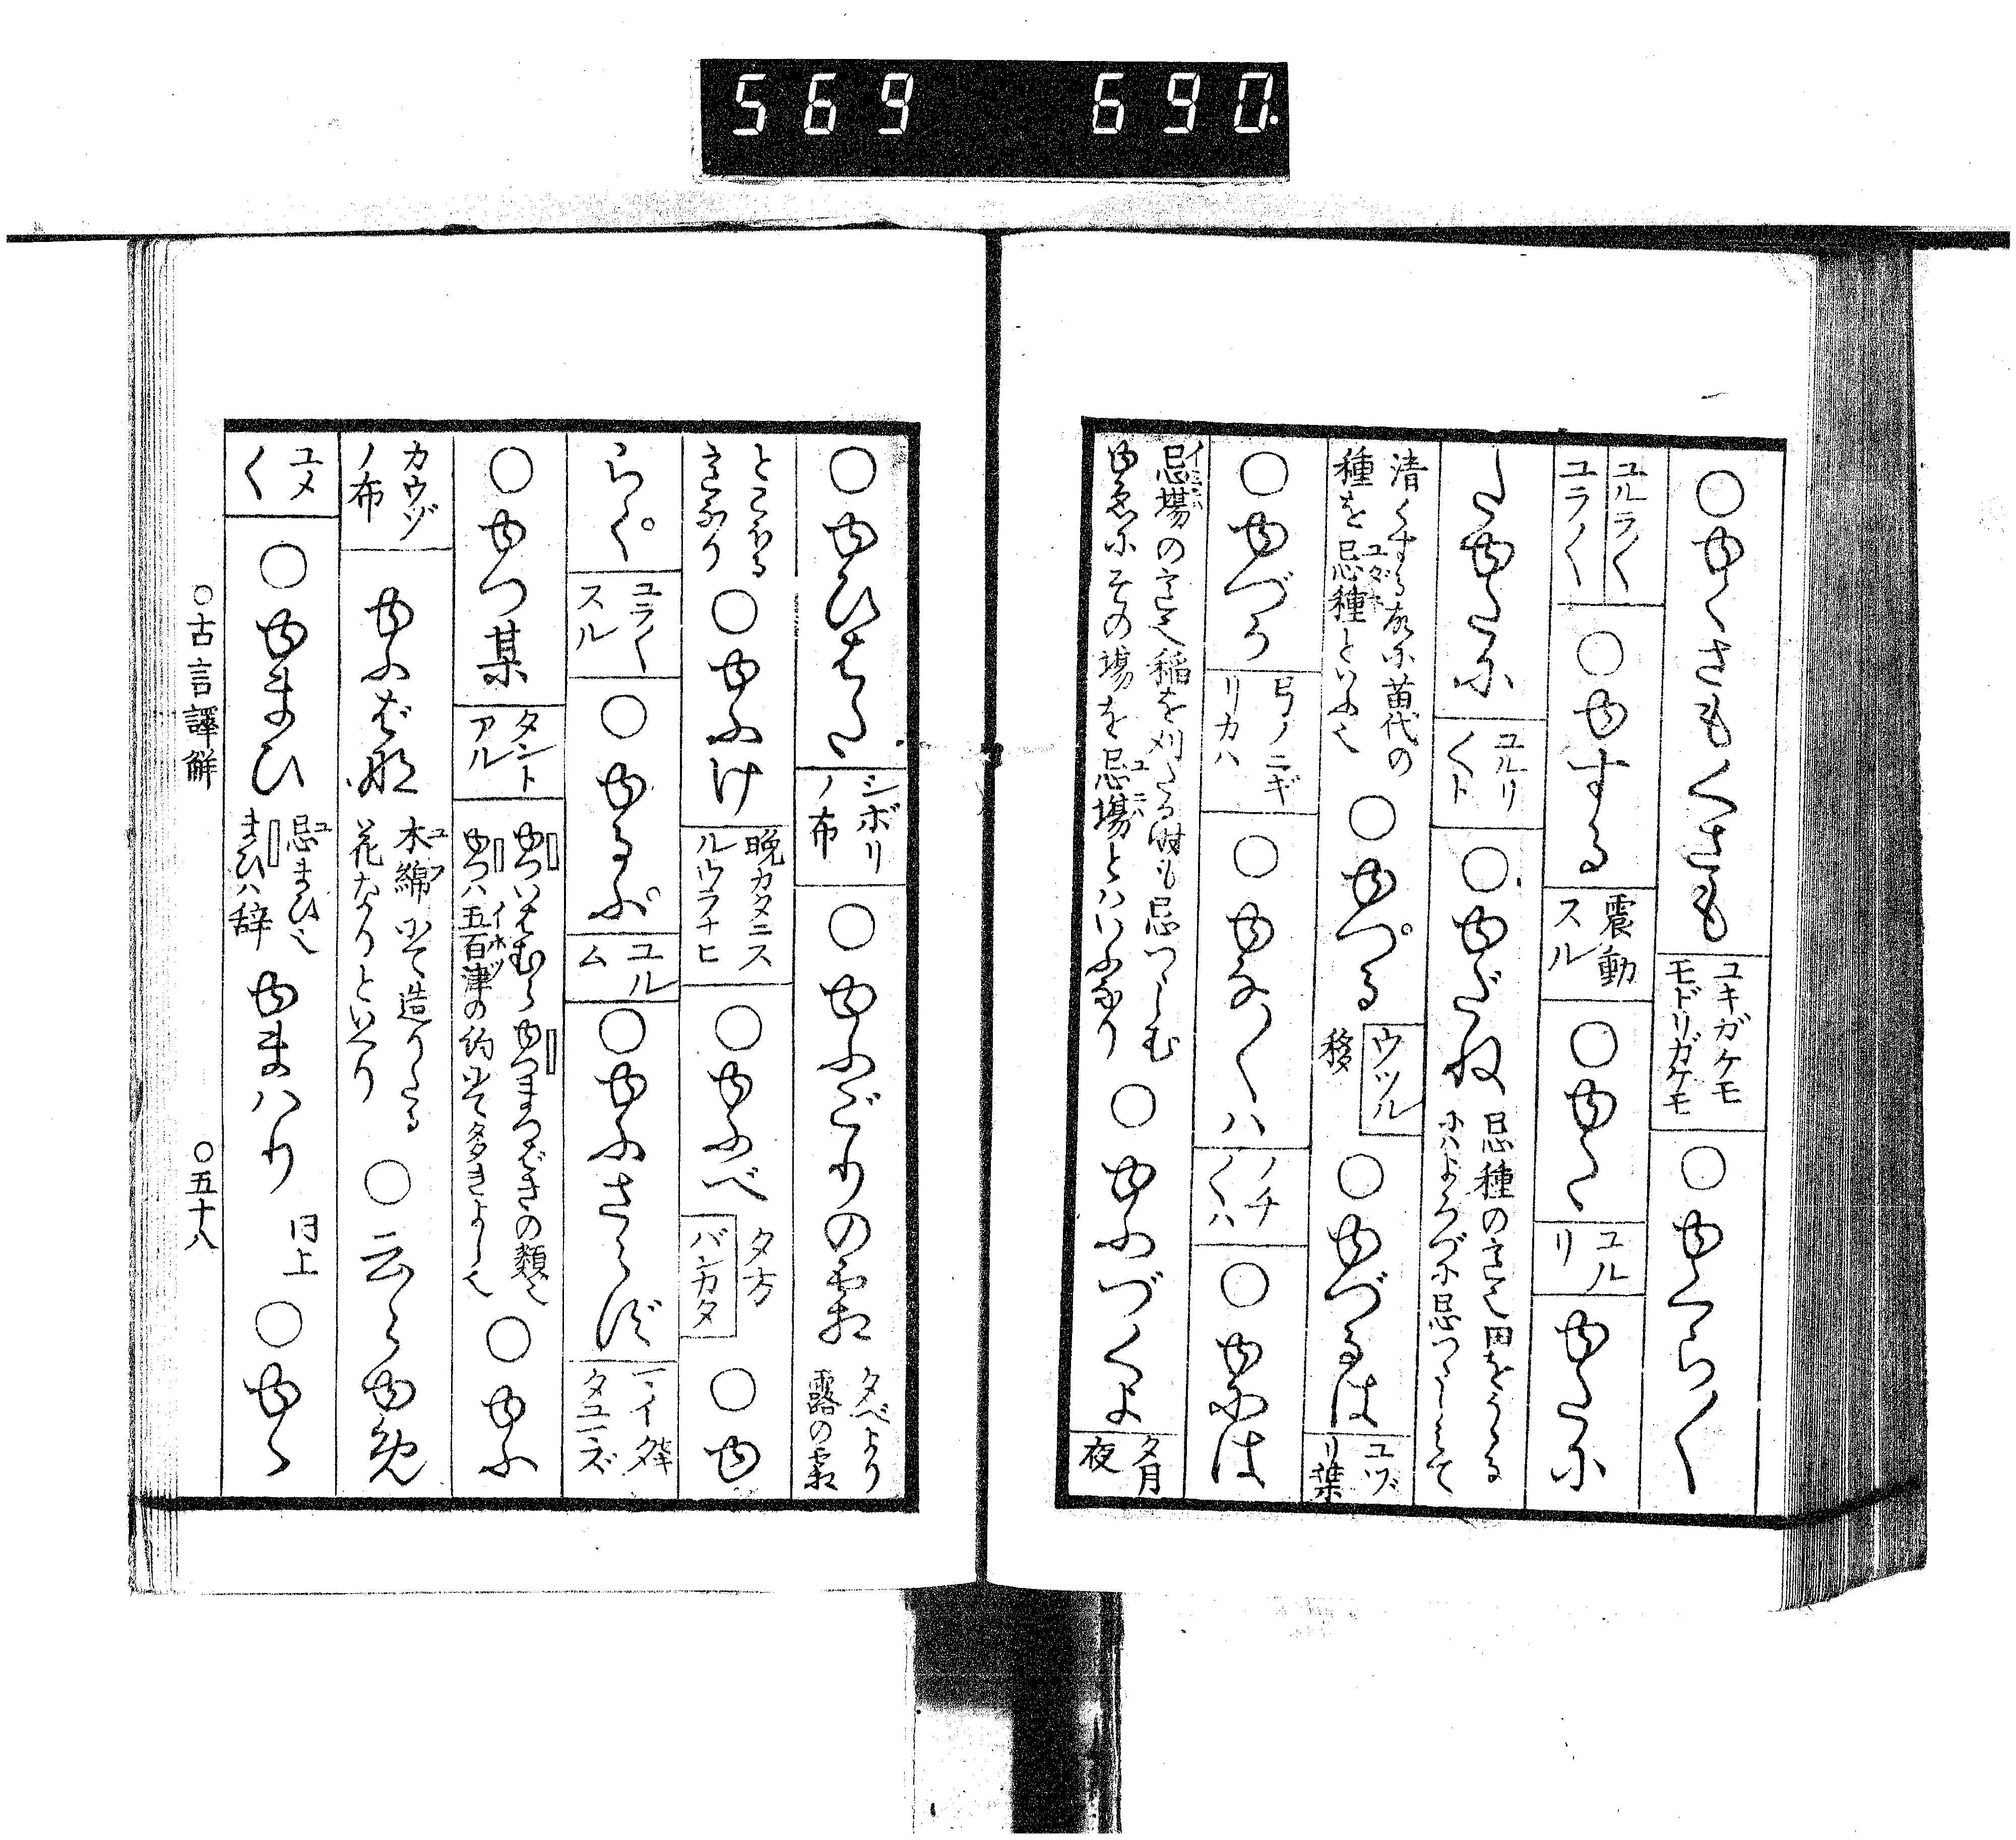 569 690.
○ゆくさもくさも ユキガケモモドリガケモ ○ゆくら〳〵
ユルラ〳〵ユラ〳〵 ○ゆする 震動スル ○ゆた ユルリ ゆたに
たゆたに ユルリ〳〵ト ○ゆだね 忌種の意也田をううる
清くする故に苗代の種を忌種といふ也 ○ゆつる ウツル 移 ○ゆづるは ユヅリ葉
○ゆづら 弓ノニギリカハ ○ゆな〳〵ハ ノチ〳〵ハ ○ゆには
忌場の意也稲を刈たる時も忌つゝしむゆゑにその場を忌場とハいふなり ○ゆふづくよ 夕月夜
○ゆひはた シボリノ布 ○ゆふごりの霜 夕べより露の霜
とこほる意なり ○ゆふけ 晩カタニスルウラナヒ ○ゆふべ 夕方 バンカタ ○ゆ
らく ユラ〳〵スル ○ゆるふ ユルム ○ゆふさらず
○ゆつ某 タントアル ゆついはむらゆつまつばきの類也ゆつハ五百津の約にて多きよし也 ○ゆふ
カウゾノ布 ゆふばな 木綿にて造りたる花なりといへり ○ゆめ
ユメ〳〵 ○ゆまひ 忌まひ也まひハ辞 ゆまハり 同上 ○ゆゝ
○古言譯解 ○五十八